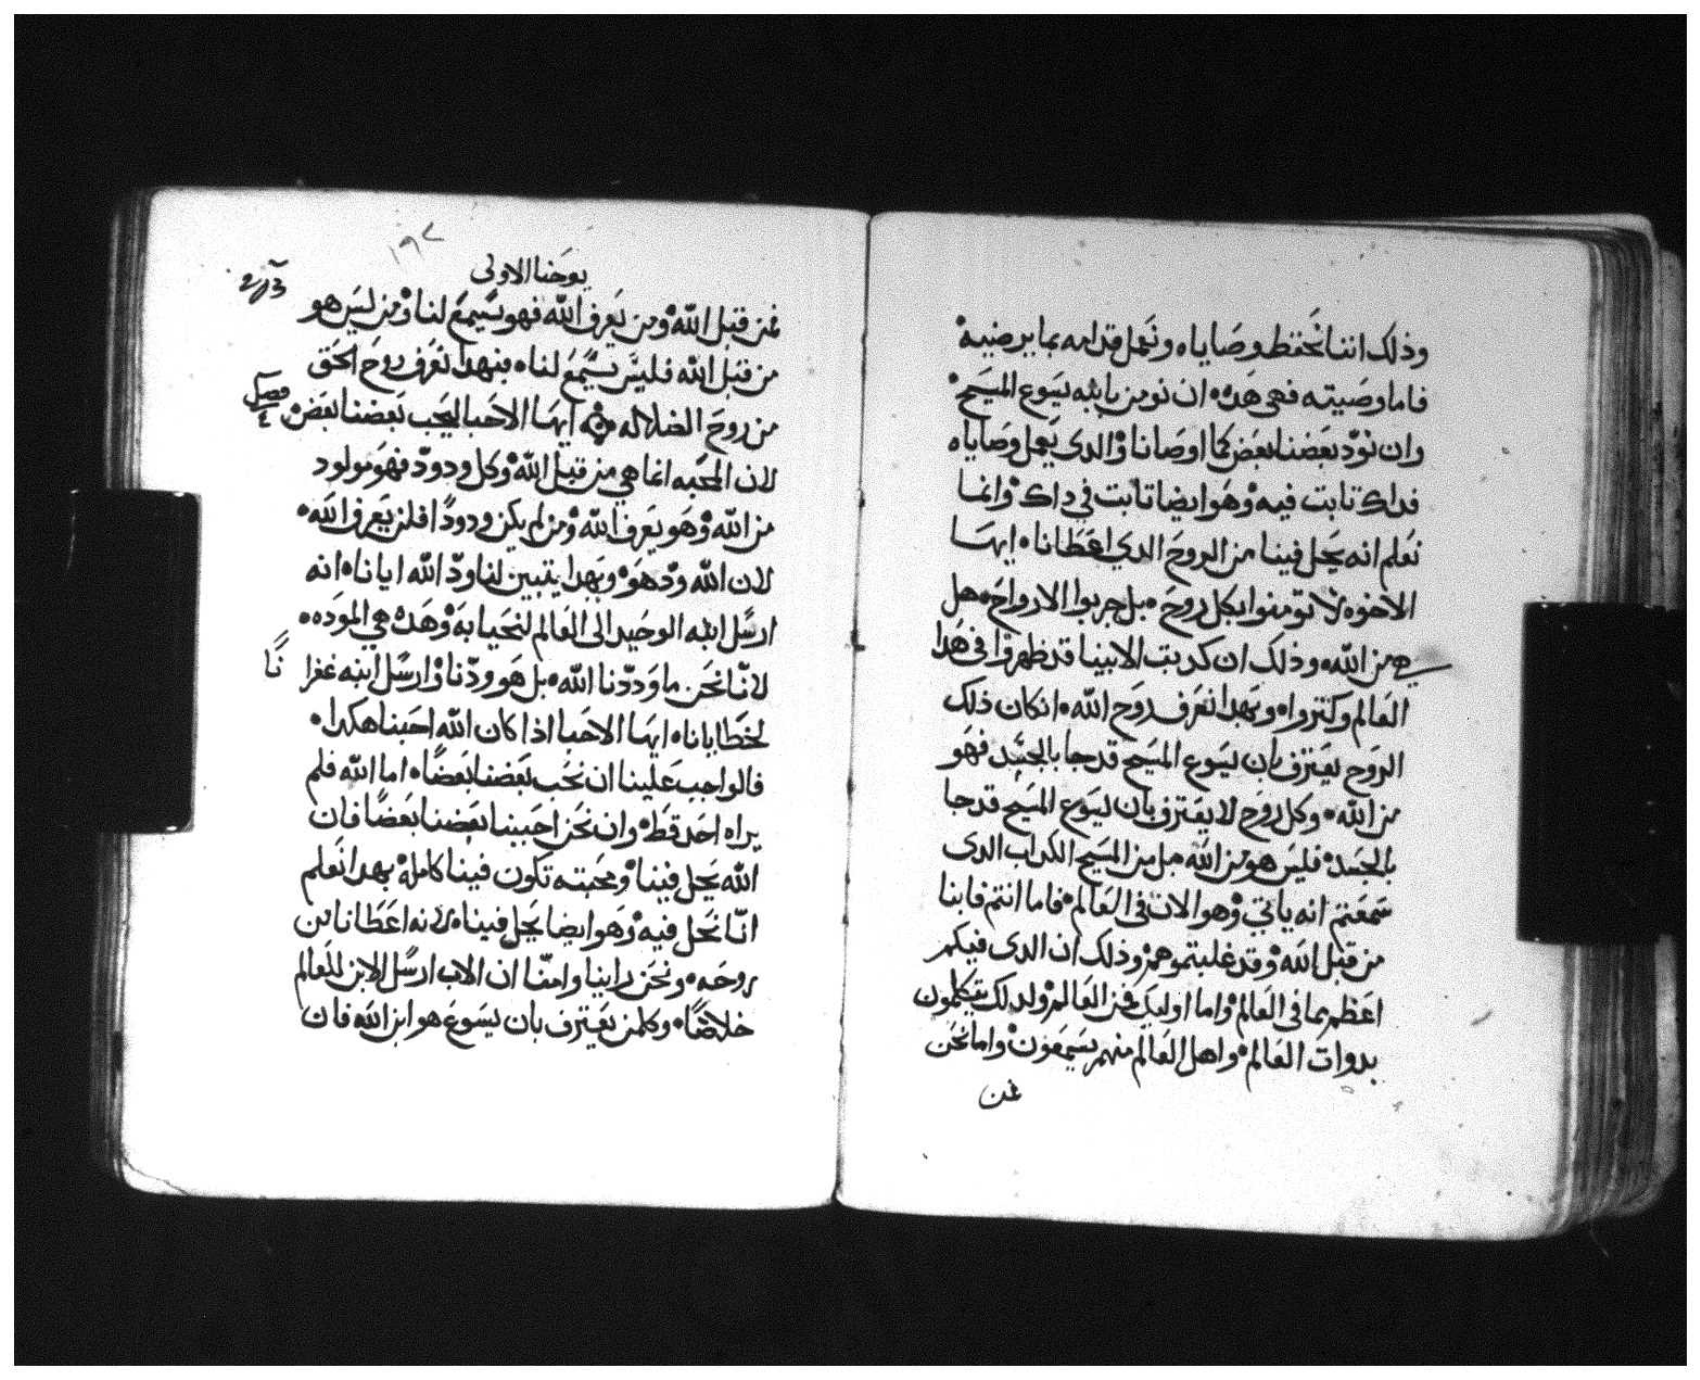 وذلك اننا نحتفظ وصاياه ونعمل قدامه بما يرضيه
فاما وصيته فهي هده ان نومن بابنه يسوع المسيح
وان نودّ بعضنا بعض كما اوصانا والدى يعمل وصاياه
فداك تابت فيه وهو ايضا تابت في داك وانما
نعلم انه يحل فينا من الروح الدي اعطانا ايها
الاخوه لا تومنوا بكل روح بل جربوا الارواح هل
هي من الله وذلك ان كدبت الانبيا قد ظهروا في هدا
العالم وكتروا وبهدا نعرف روح الله انكان ذلك
الروح يعترف بان يسوع المسيح قد جا بالجسد فهو
من الله وكل روح لا يعترف بان يسوع المسيح قد جا
بالجسد فليس هو من الله بل من المسيح الكداب الدى
سمعتم انه ياتي وهو الان في العالم فاما انتم فابنا
من قبل الله وقد غلبتموهم وذلك ان الدى فيكم
اعظم مما في العالم واما اوليك فمن العالم ولدلك يتكلمون
بدوات العالم واهل العالم منهم يسمعون واما نحن
فمن
١٩٢
يوحنا الاولى
فمن قبل الله ومن يعرف الله فهو يسمع لنا ومن ليس هو
من قبل الله فليس يسمع لنا فبهدا نعرف روح الحق
من روح الضلاله ايها الاحبا ليحب بعضنا بعض
فصل
٤
لان المحبه انما هي من قبل الله وكل ودودّ فهو مولود
من الله وهو يعرف الله ومن لم يكن ودودًا فلن يعرف الله
لان الله ودّ هو وبهدا يتبين لنا ودّ الله ايانا انه
ارسل ابنه الوحيد الى العالم لنحيا به وهده هي الموده
لانّا نحن ما وددّنا الله بل هو ودّنا وارسل ابنه غفرا
نًا
لخطايانا ايها الاحبا اذا كان الله احبنا هكدا
فالواجب علينا ان نحب بعضنا بعضًا اما الله فلم
يراه احد قط وان نحن احببنا بعضنا بعضًا فان
الله يحل فينا ومحبته تكون فينا كامله بهدا نعلم
انّا نحل فيه وهو ايضا يحل فينا لانه اعطانا من
روحه ونحن راينا وامنّا ان الاب ارسل الابن للعالم
خلاصًا وكلمن يعترف بان يسوع هو ابن الله فان